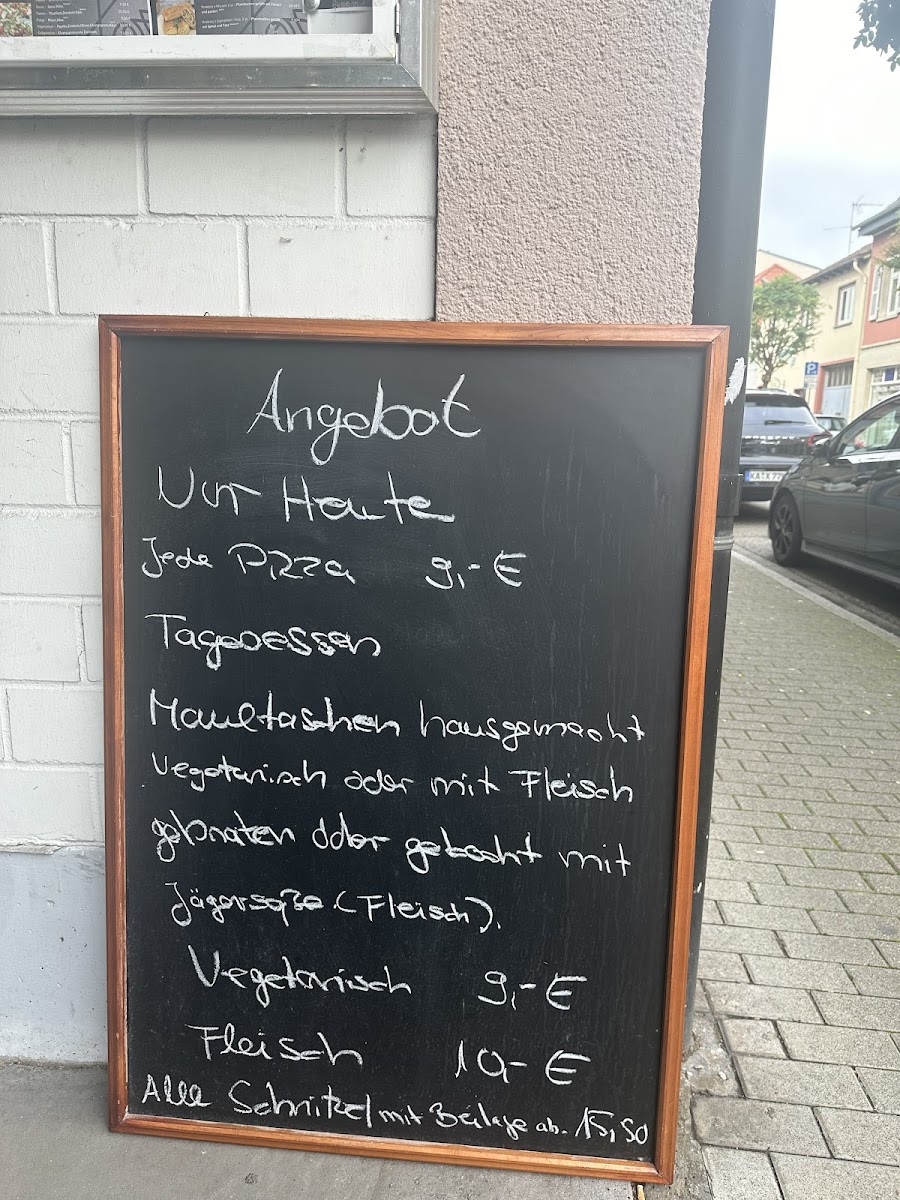 Angebot
Nur Heute
Jede Pizza 9,-€
Tagesessen
Maultaschen hausgemacht
Vegetarisch oder mit Fleisch
gebraten oder gekocht mit
Jägersoße (Fleisch).
Vegetarisch 9,-€
Fleisch 10,-€
Alle Schnitzel mit Beilage ab. 15,50
P
KA X 77